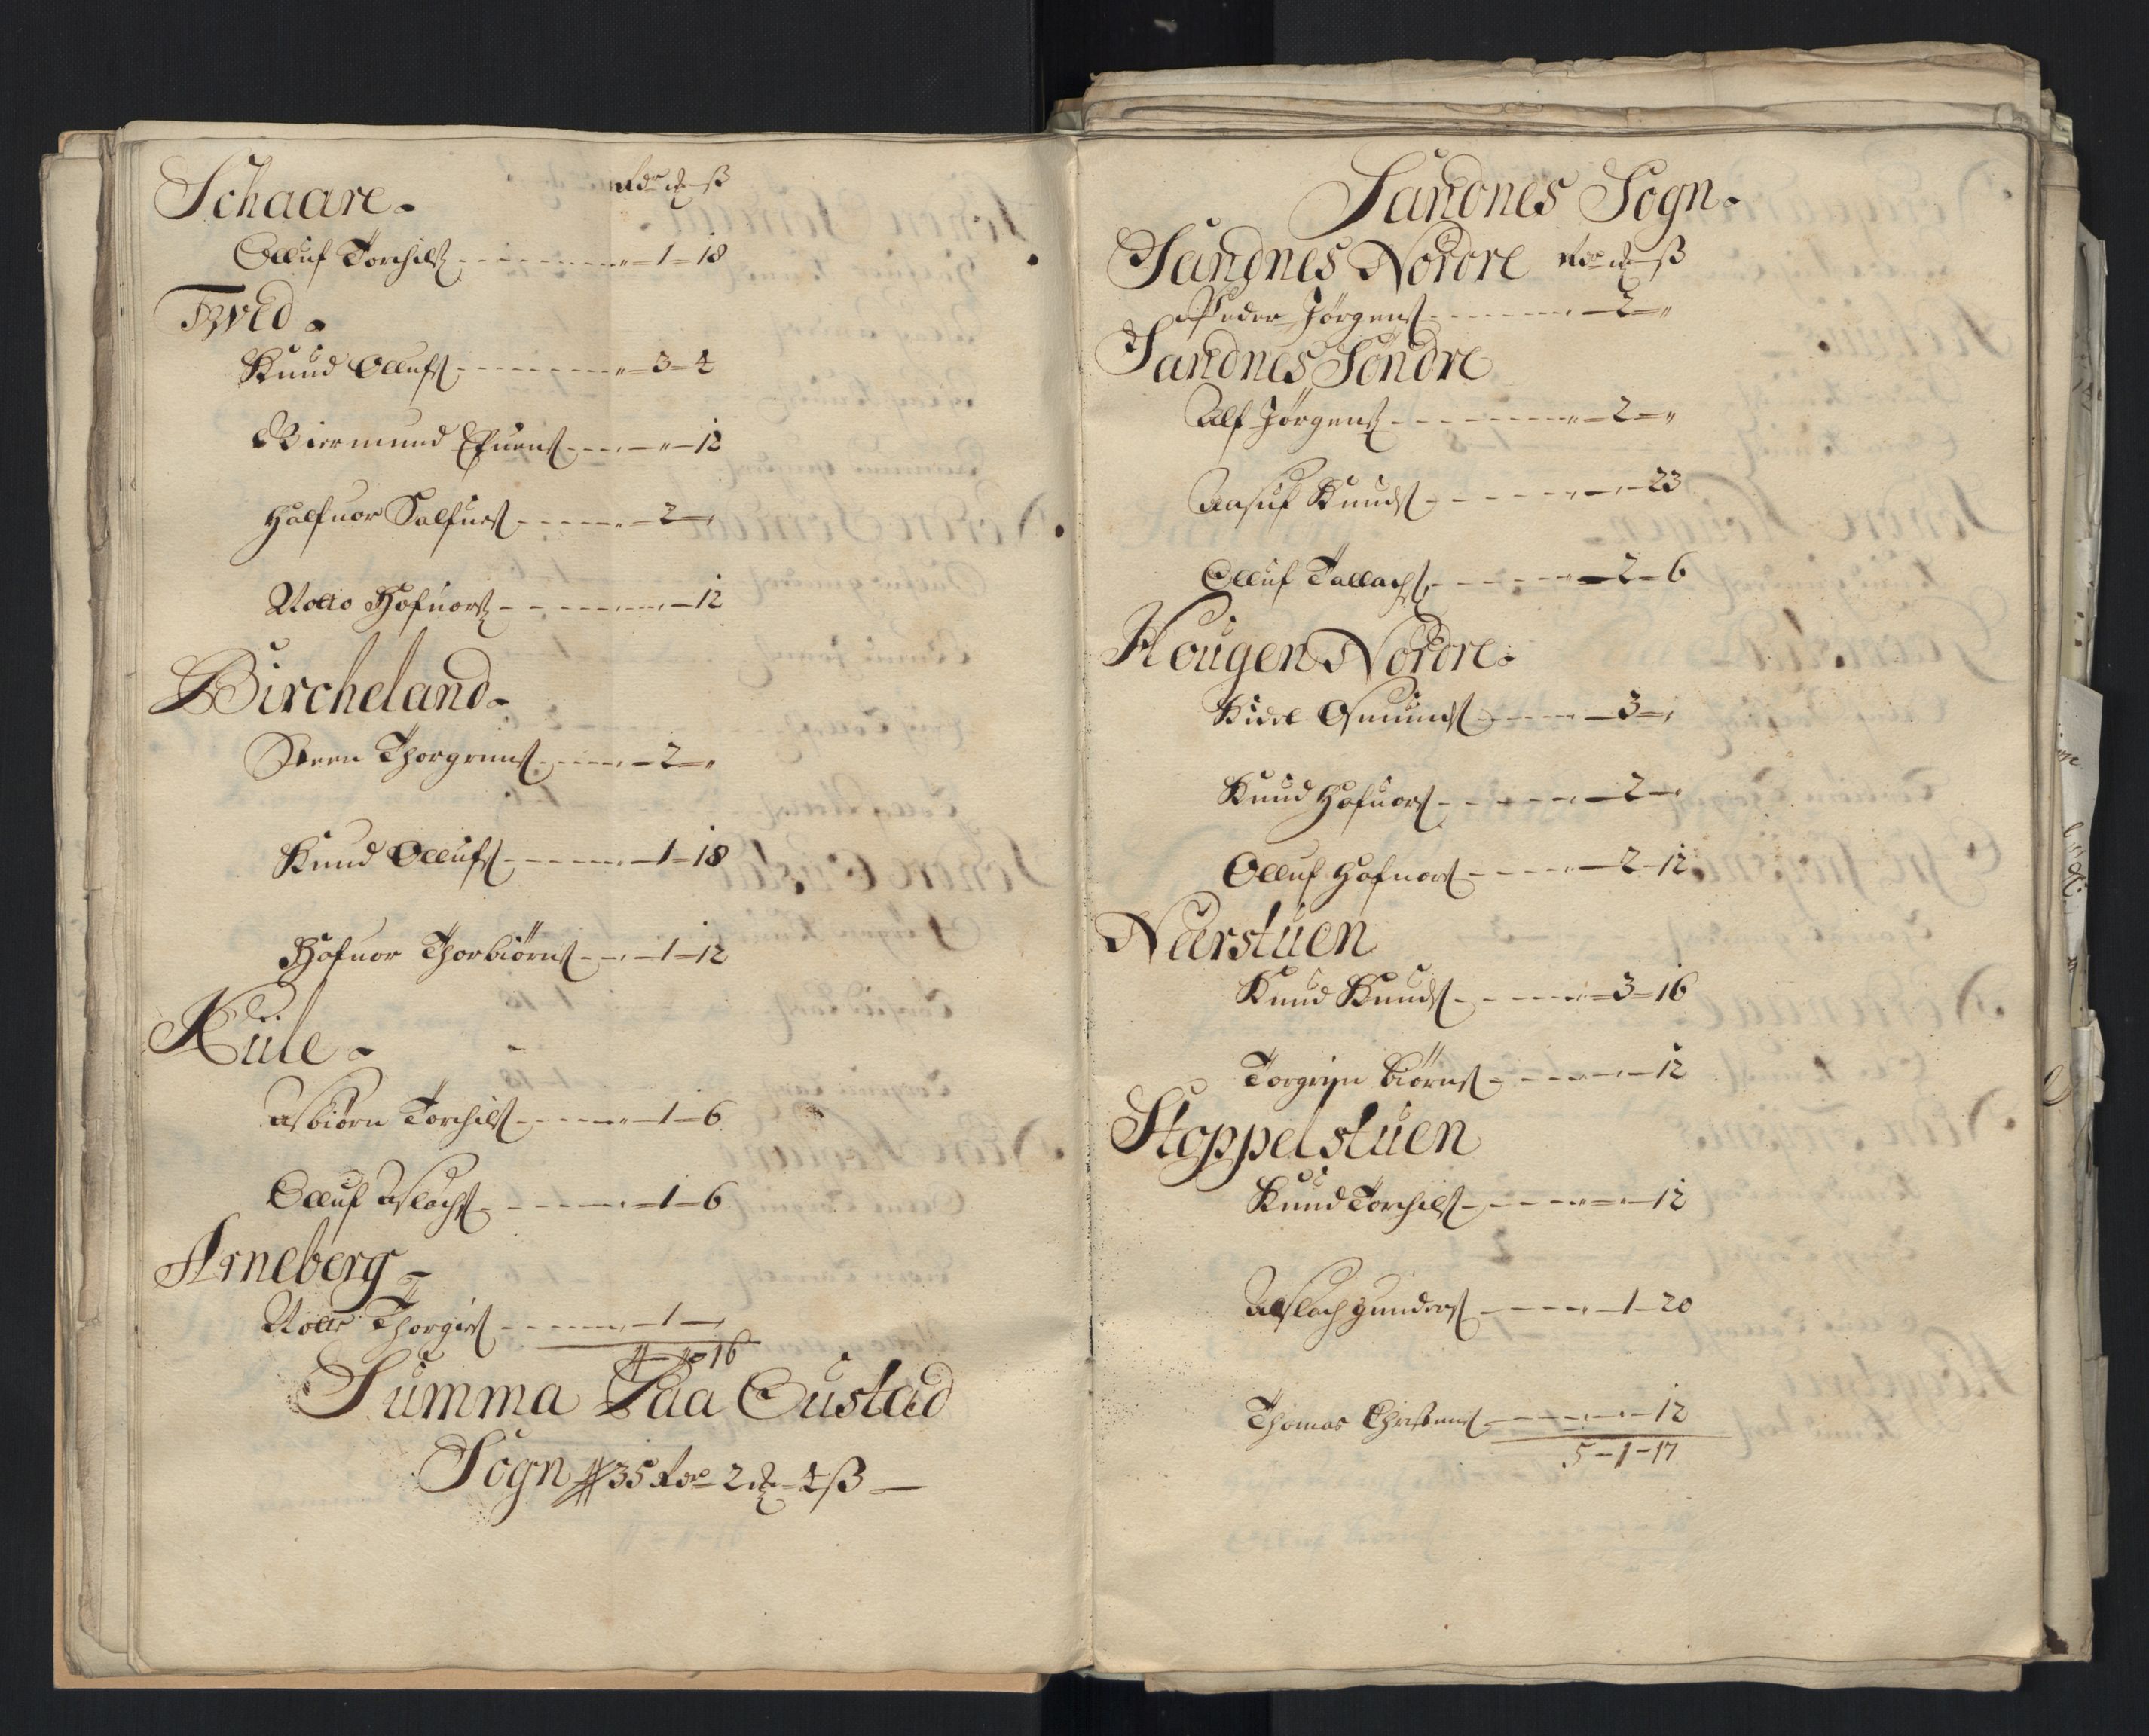 Schaare Rdr ℳ ß
Olluf Torchils „ 1 18
Tved
Knud Ollufs „ 3 4
Biermund Efuens „ 12
Halfuor Salfues „ 2 „
Notto Hofuors 12
Bircheland
Steen Thorgrims 2 „
Knud Ollufs 1 18
Hofuor Thorbiørns 1 12
Kiile
Asbiørn Torchils „ 1 6
Olluf Aslachs 1 6
Arneberg
Notte Thorgiers 1 „
4 „ 16
Summa Paa Oustad
Sogn 35 Rdr 2 ℳ 4 ß
Sandnes Sogn
Sandnes Nordre Rdr ℳ ß
Peder Jørgens 2 „
Sandnes Söndre
Alf Jørgens „ 2 „
Aasuf Knuds 23
Olluf Tallachs „ 2 6
Hougen Nordre
Kidel Osmunds 3 „
Knud Hofuors 2 „
Olluf Hofuors „ 2 12
Neerstuen
Knud Knuds „ 3 16
Torgrim Biørns 12
Stoppelstuen
Knud Torchils 12
Aslach Gunders 1 20
Thomas Christens 12
5 1 17